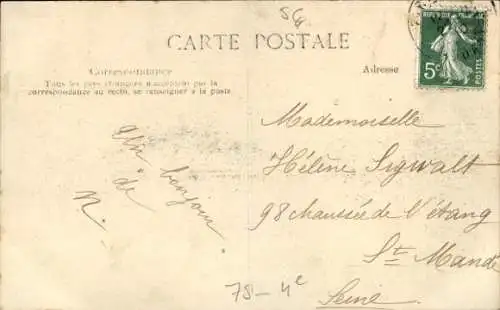 56a
CARTE POSTALE
Correspondance
Tous les pays étrangers n'acceptent pas la
correspondance au recto, se renseigner à la poste.
Adresse
REPUBLIQUE FRANÇAISE
5c
POSTES
Un bonjour
de
N.
Mademoiselle
Hélène Sigwalt
98 chaussée de l'étang
St Mandé
Seine
78-4e